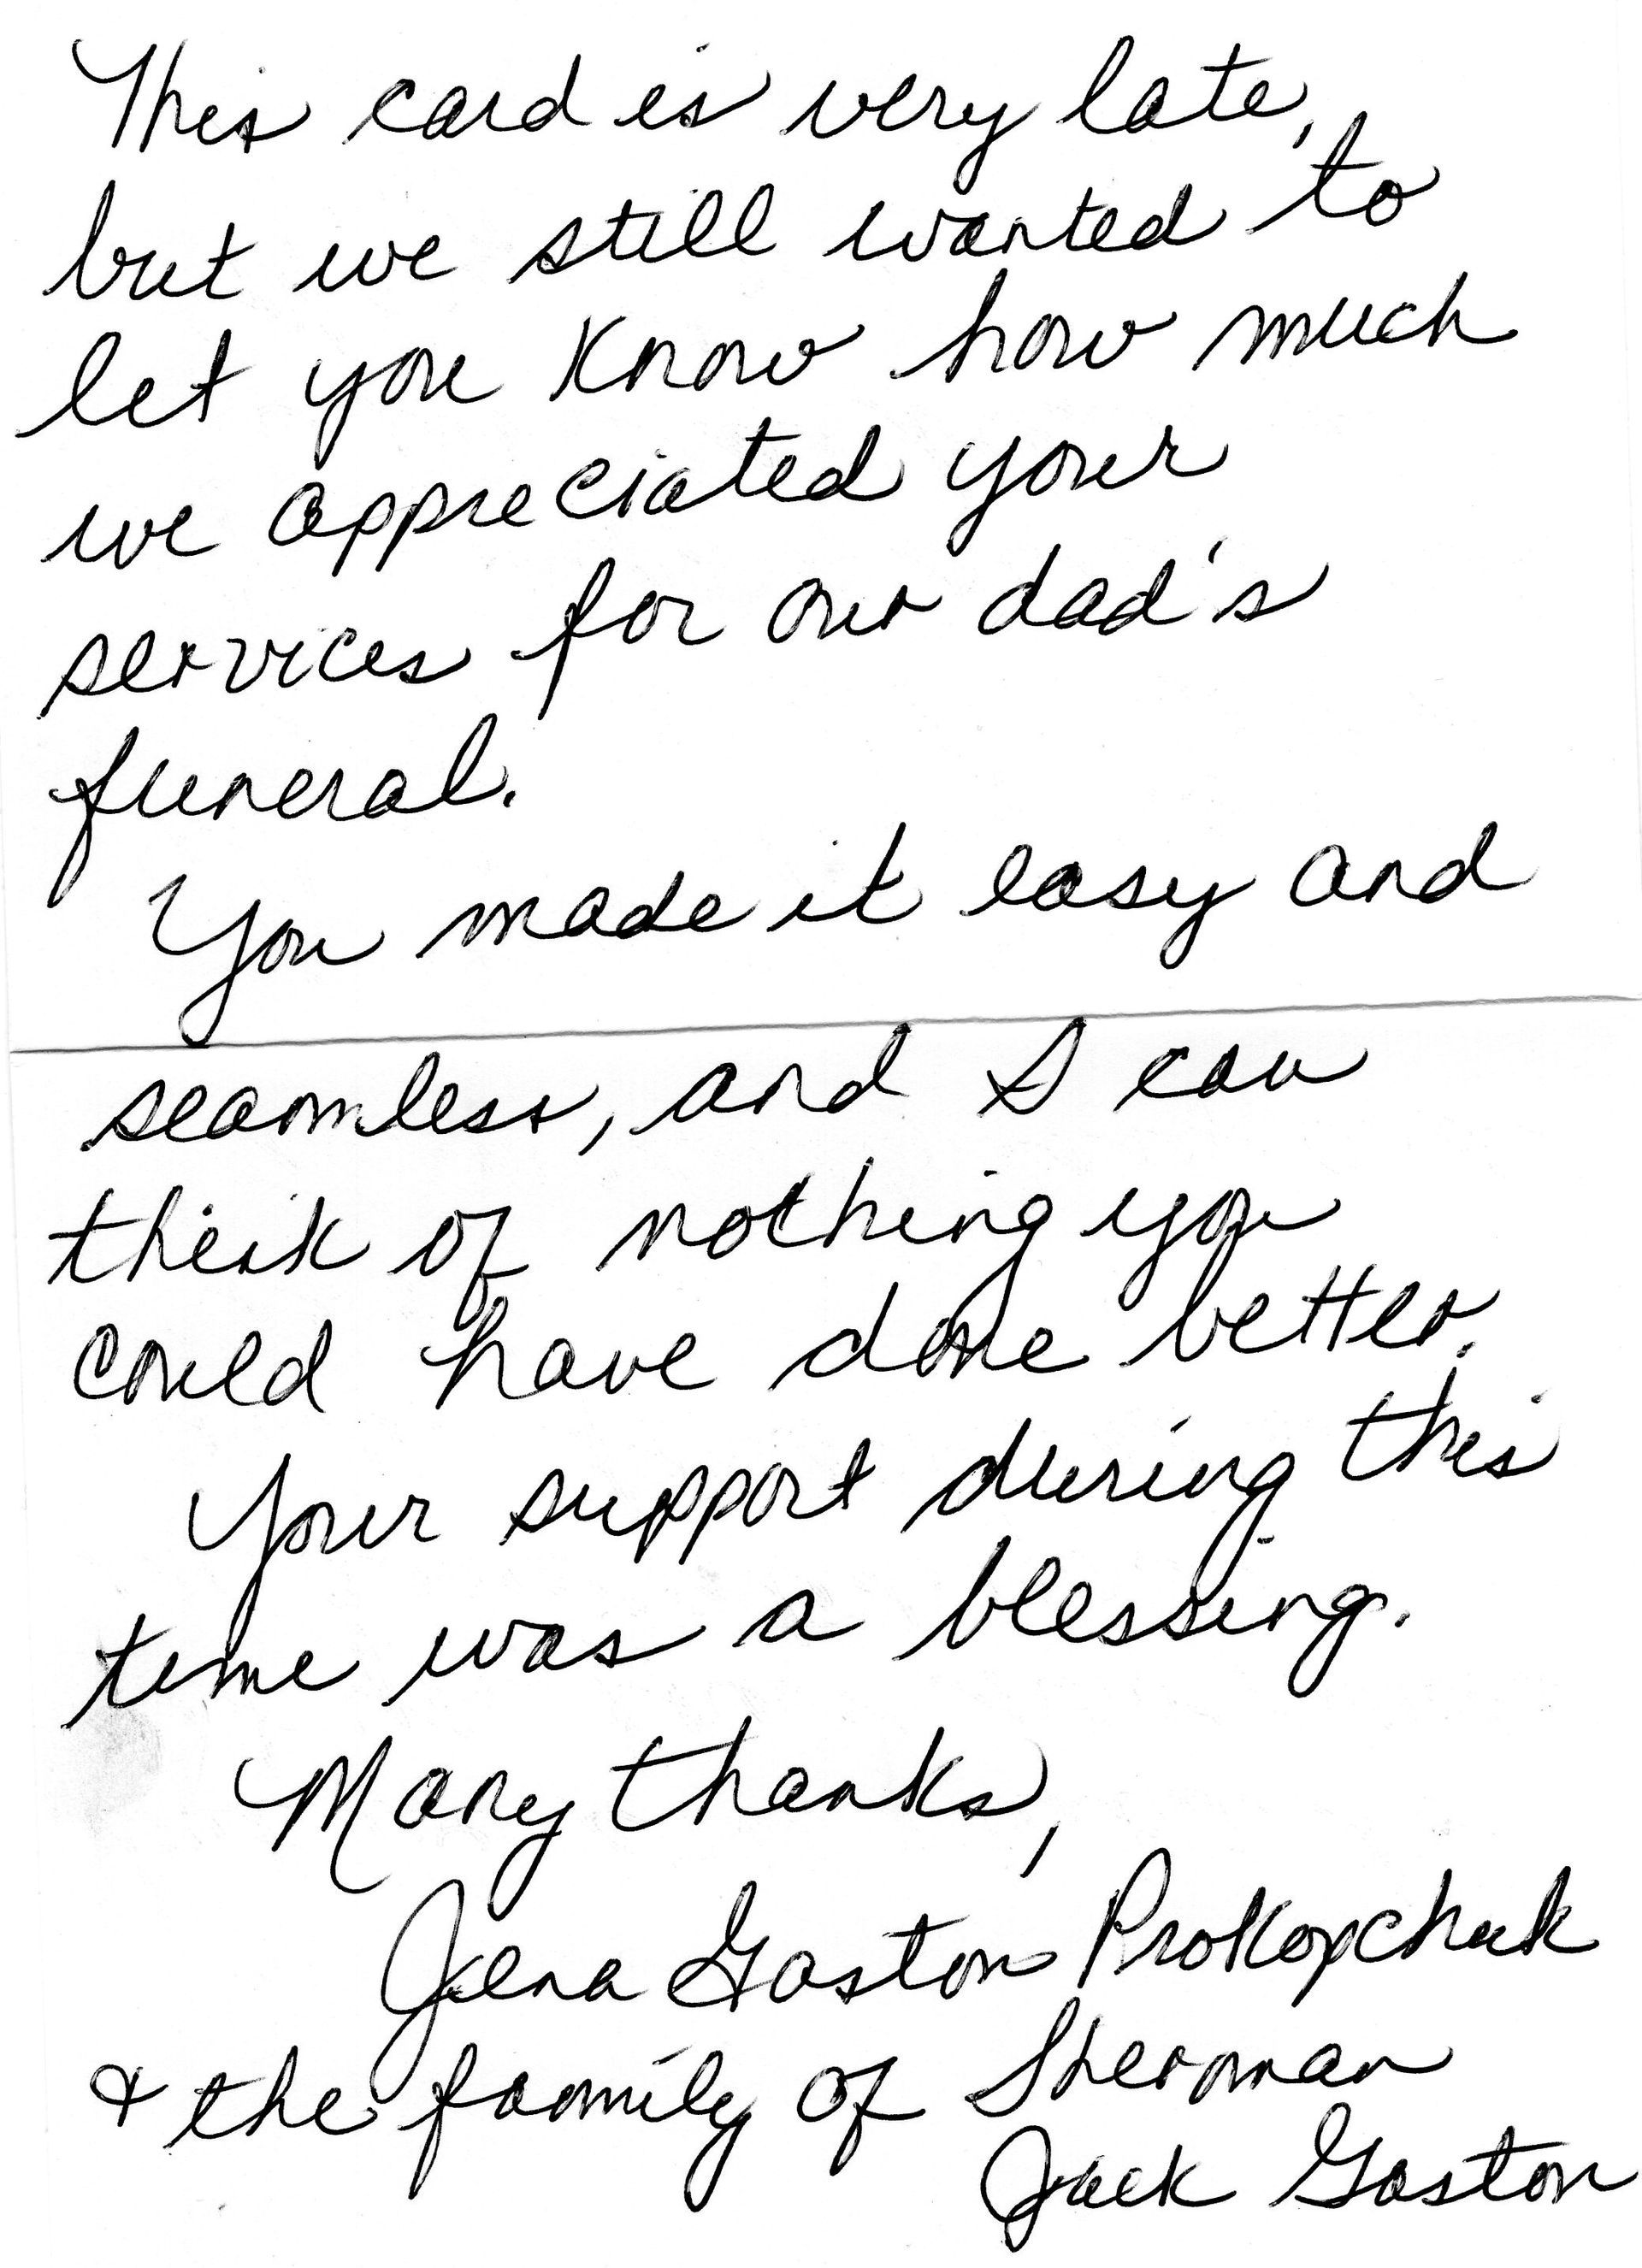 This card is very late,
but we still wanted to
let you know how much
we appreciated your
services for our dad's
funeral.
You made it easy and
seamless, and I can
think of nothing you
could have done better.
Your support during this
time was a blessing.
Many thanks,
Jena Gaston Prokopchuk
& the family of Sherman
Jack Gaston